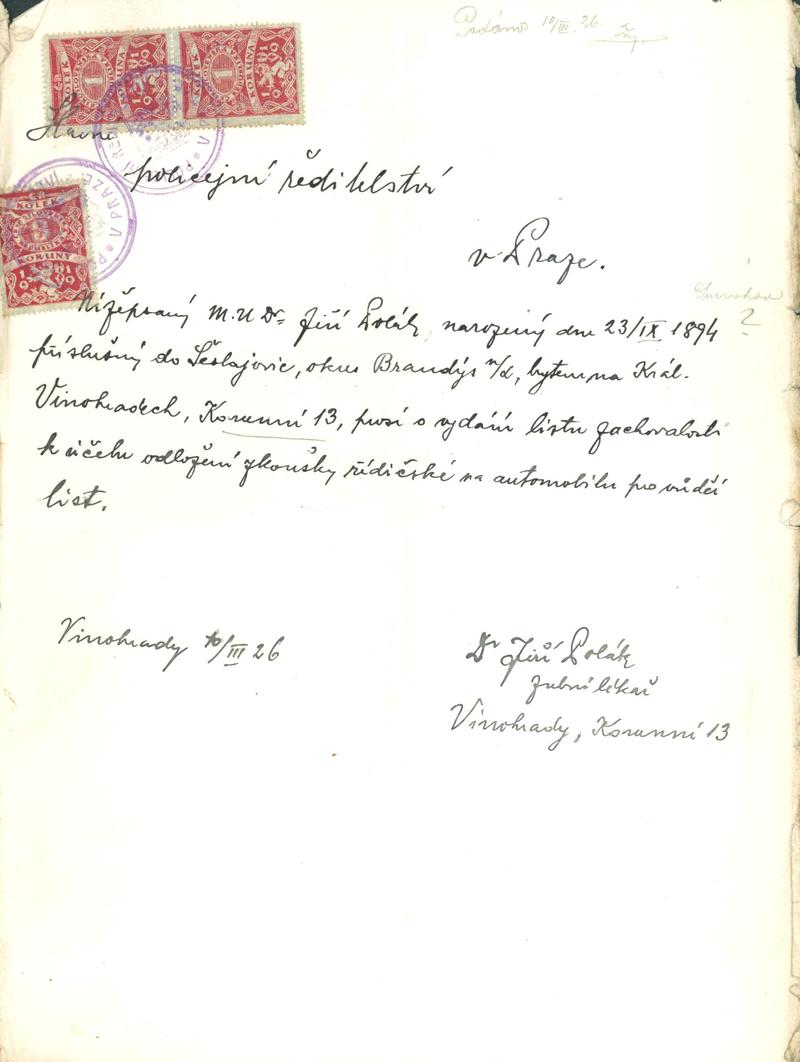 Podáno 10/III. 26
Slavné
policejní ředitelství
v Praze.
Nížepsaný M.U.Dr Jiří Polák, narozený dne 23/IX 1894
příslušný do Šestajovic, okres Brandýs n/L, bytem na Král.
Vinohradech, Korunní 13, prosí o vydání listu zachovalosti
k účelu odložení zkoušky řidičské na automobilu pro vůdčí
list.
Vinohrady 10/III 26
Dr Jiří Polák
zubní lékař
Vinohrady, Korunní 13
KOLEK
1
KORUNA
1919
KOLEK
1
KORUNA
1919
KOLEK
KORUNY
1919
V PRAZE
?